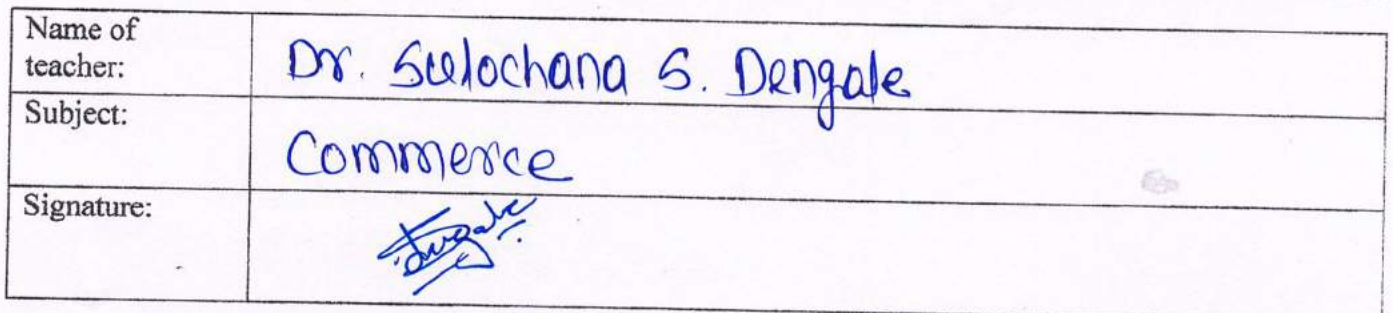 Name of
teacher:
Dr. Sulochana S. Dengale
Subject:
Commerce
Signature:
Dengale